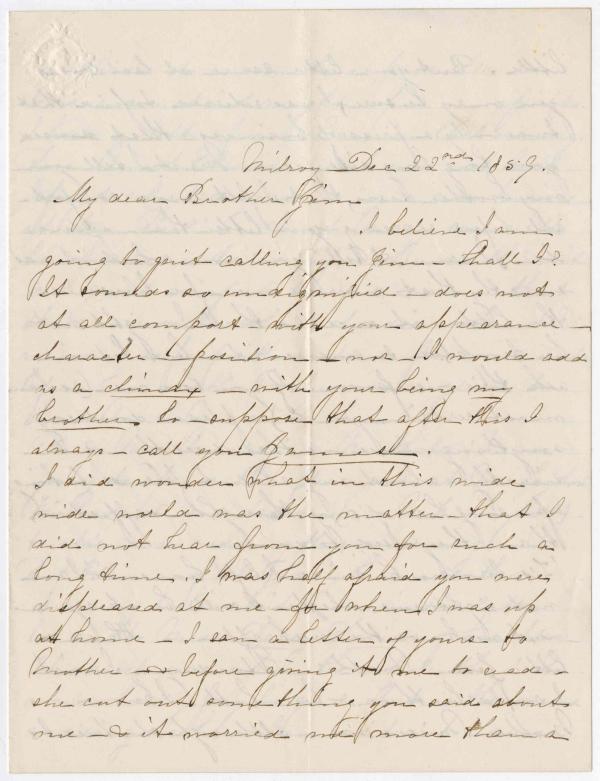 Milroy Dec 22nd 1859.
My dear Brother Jim
I believe I am
going to quit calling you Jim - Shall I?
It sounds so undignified - does not
at all comport - with your appearance -
character - position - nor - I would add
as a climax - with your being my
brother. So - suppose that after this I
always - call you James.
I did wonder what in this wide
wide world was the matter - that I
did not hear from you for such a
long time. I was half afraid you were
displeased at me - for when I was up
at home - I saw a letter of yours to
Mother - & before giving it me to read -
she cut out something you said about
me - & it worried me more than a